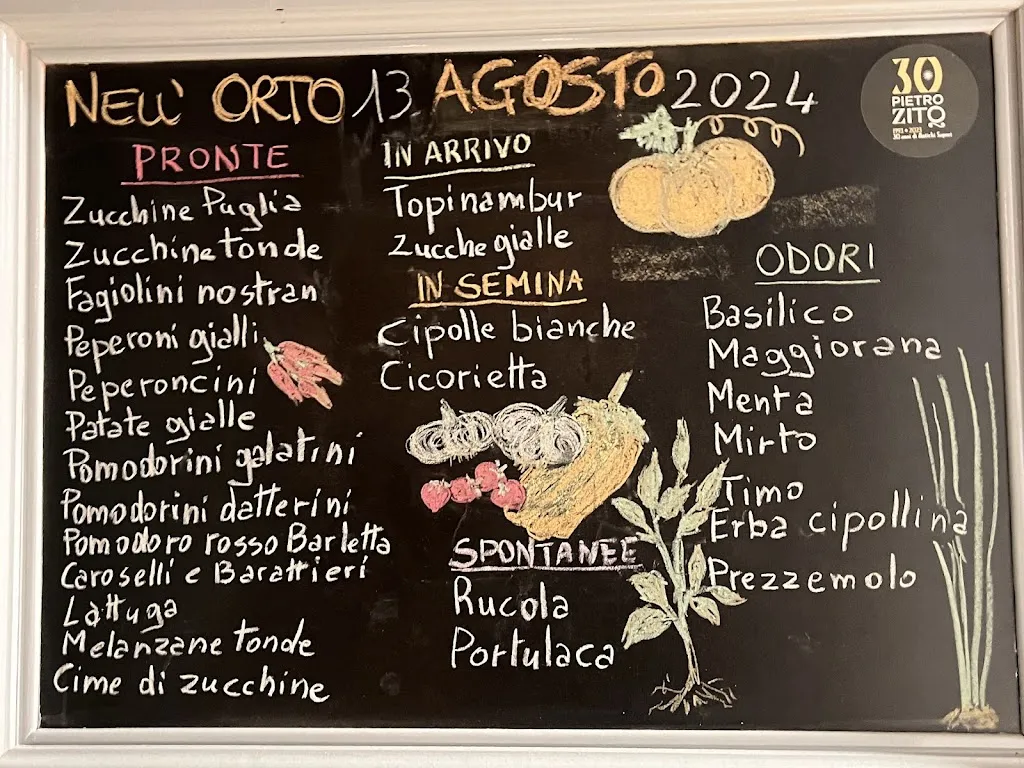 NELL' ORTO 13 AGOSTO 2024
30
PIETRO
ZITO
1993 • 2023
30 anni di Antichi Sapori
PRONTE
Zucchine Puglia
Zucchine tonde
Fagiolini nostran
Peperoni gialli
Peperoncini
Patate gialle
Pomodorini galatini
Pomodorini datterini
Pomodoro rosso Barletta
Caroselli e Barattieri
Lattuga
Melanzane tonde
Cime di zucchine
IN ARRIVO
Topinambur
Zucche gialle
IN SEMINA
Cipolle bianche
Cicorietta
SPONTANEE
Rucola
Portulaca
ODORI
Basilico
Maggiorana
Menta
Mirto
Timo
Erba cipollina
Prezzemolo